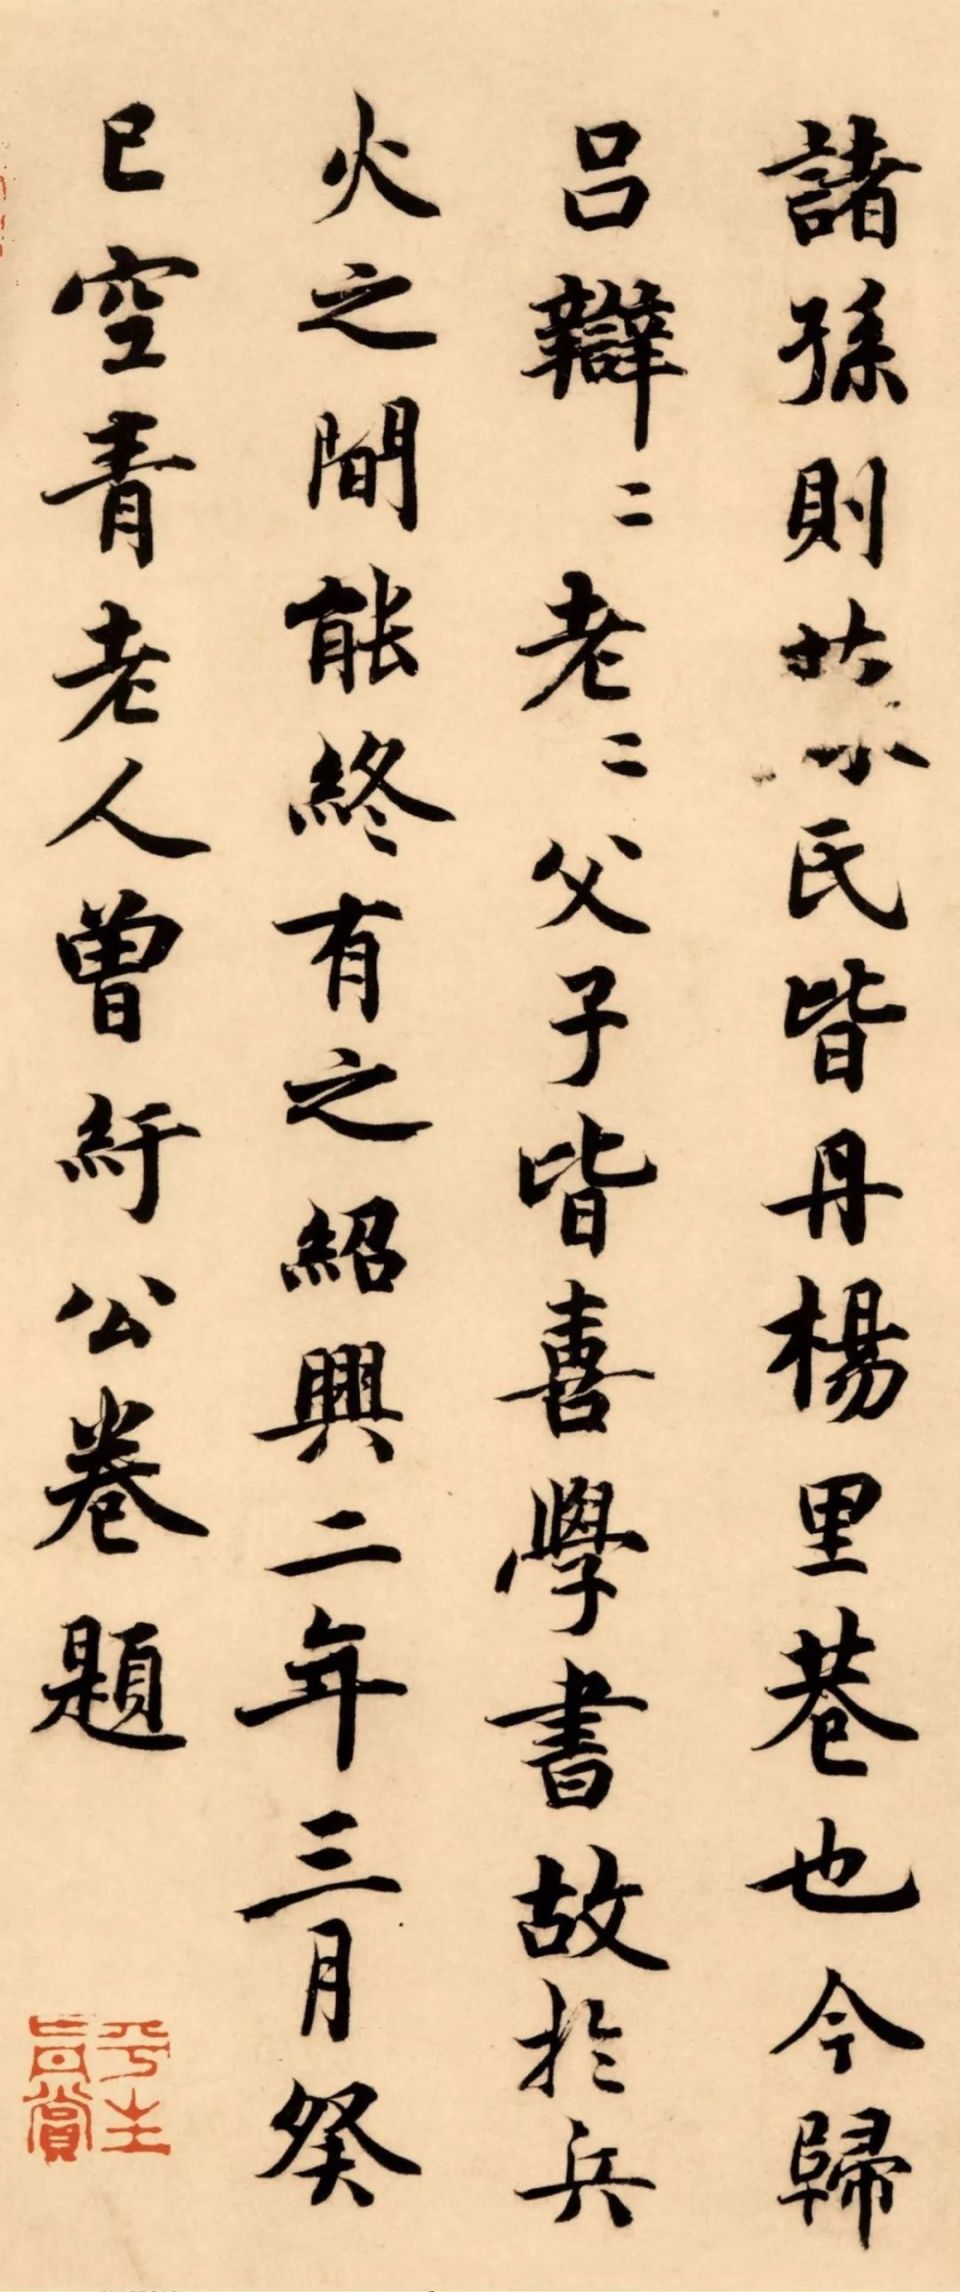 諸孫則蘇氏皆丹楊里巷也今歸
呂辯二老二父子皆喜學書故於兵
火之間能終有之紹興二年三月癸
巳空青老人曾紆公卷題
平生真賞